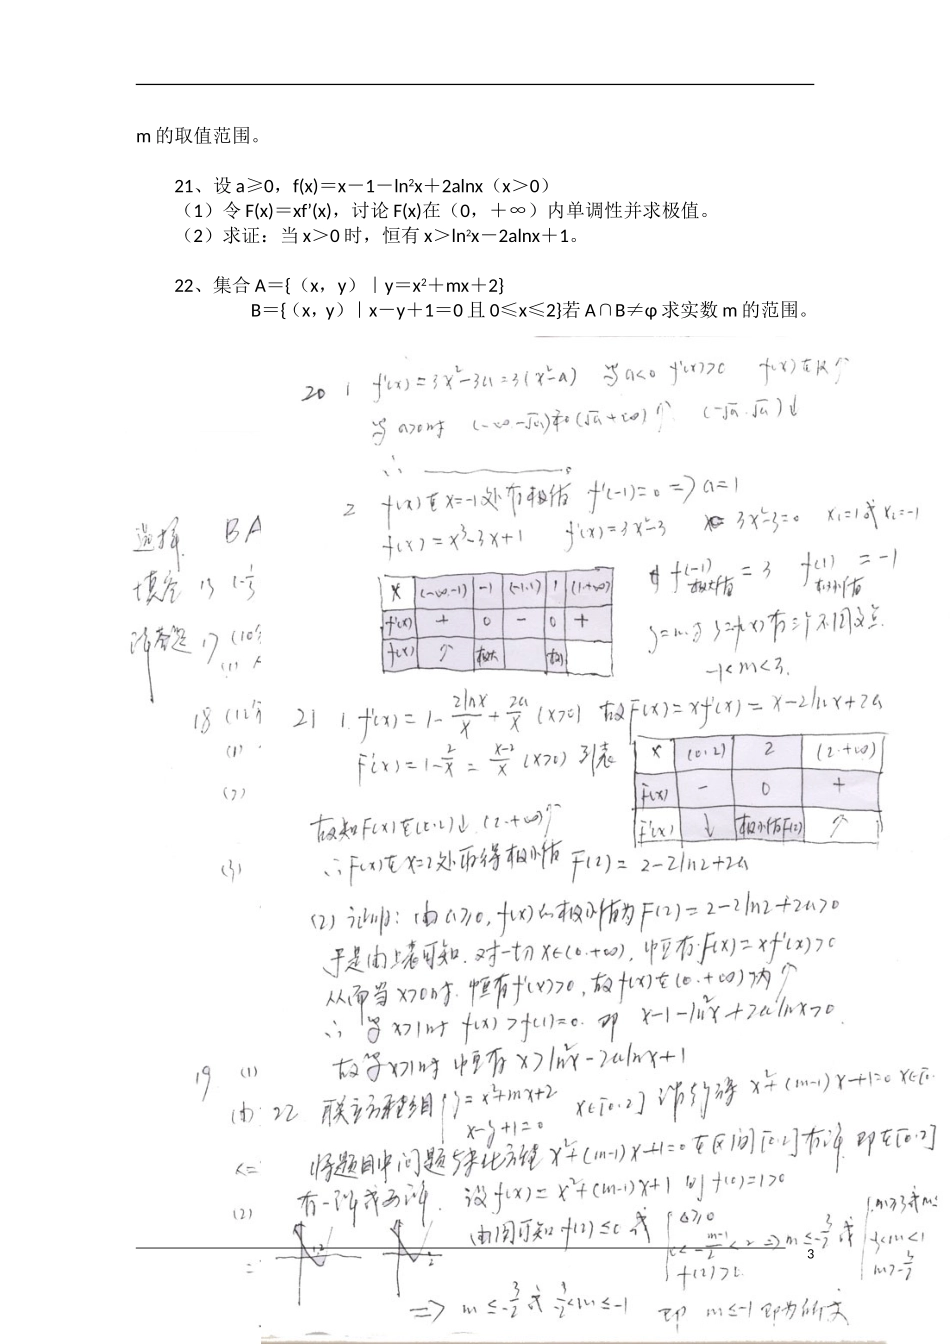 m 的取值范围。
21、设 a≥0，f(x)＝x－1－ln²x＋2alnx（x＞0）
（1）令 F(x)＝xf’(x)，讨论 F(x)在（0，＋∞）内单调性并求极值。
（2）求证：当 x＞0 时，恒有 x＞ln²x－2alnx＋1。
22、集合 A＝{（x，y）｜y＝x²＋mx＋2}
B＝{（x，y）｜x－y＋1＝0 且 0≤x≤2}若 A∩B≠φ 求实数 m 的范围。
20 1 f'(x)=3x²-3a=3(x²-a) 当a<0 f'(x)>0 f(x)在R↑
当a>0时 (-∞.-√a)和(√a+∞)↑ (-√a.√a)↓
∴
2 f(x)在x=-1处有极值 f'(-1)=0 => a=1
f(x)=x³-3x+1 f'(x)=3x²-3 3x²-3=0 x₁=1或x₂=-1
选择 BA
填空 13
解答题 17
x (-∞.-1) -1 (-1.1) 1 (1.+∞)
f'(x) + 0 - 0 +
f(x) ↑ 极大 极小
f(-1)极大值=3 f(1)极小值=-1
y=m与y=f(x)有三个不同交点
-1<m<3.
18
21 1. f'(x)=1-2lnx/x+2a/x (x>0) 故F(x)=xf'(x)=x-2lnx+2a
F'(x)=1-2/x=(x-2)/x (x>0) 列表
x (0.2) 2 (2.+∞)
F(x) - 0 +
F'(x) ↓ 极小值F(2) ↑
故知F(x)在(0.2)↓ (2.+∞)↑
∴F(x)在x=2处取得极小值 F(2)=2-2ln2+2a
(3)
(2) 证明：由a≥0, f(x)的极小值为F(2)=2-2ln2+2a>0
于是由上表可知. 对一切x∈(0.+∞), 恒有F(x)=xf'(x)>0
从而当x>0时. 恒有f'(x)>0, 故f(x)在(0.+∞)内↑
∴当x>1时 f(x)>f(1)=0. 即 x-1-ln²x+2alnx>0.
故当x>1时 恒有x>ln²x-2alnx+1
19 (1)
由
22 联立方程组{y=x²+mx+2 x-y+1=0 x∈[0.2] 消y得 x²+(m-1)x+1=0 x∈[0.
将题目中问题转化方程 x²+(m-1)x+1=0在区间[0.2]有解 即在[0.2]
有一解或两解. 设f(x)=x²+(m-1)x+1 则f(0)=1>0
(2)
由图可知 f(2)≤0 或 {△≥0 0<-(m-1)/2<2 f(2)>0 => m≤-3/2 或 {m≥3或m≤ -3<m<1 m>-3/2
3
=> m≤-3/2 或 -3/2<m≤-1 即 m≤-1 即为所求